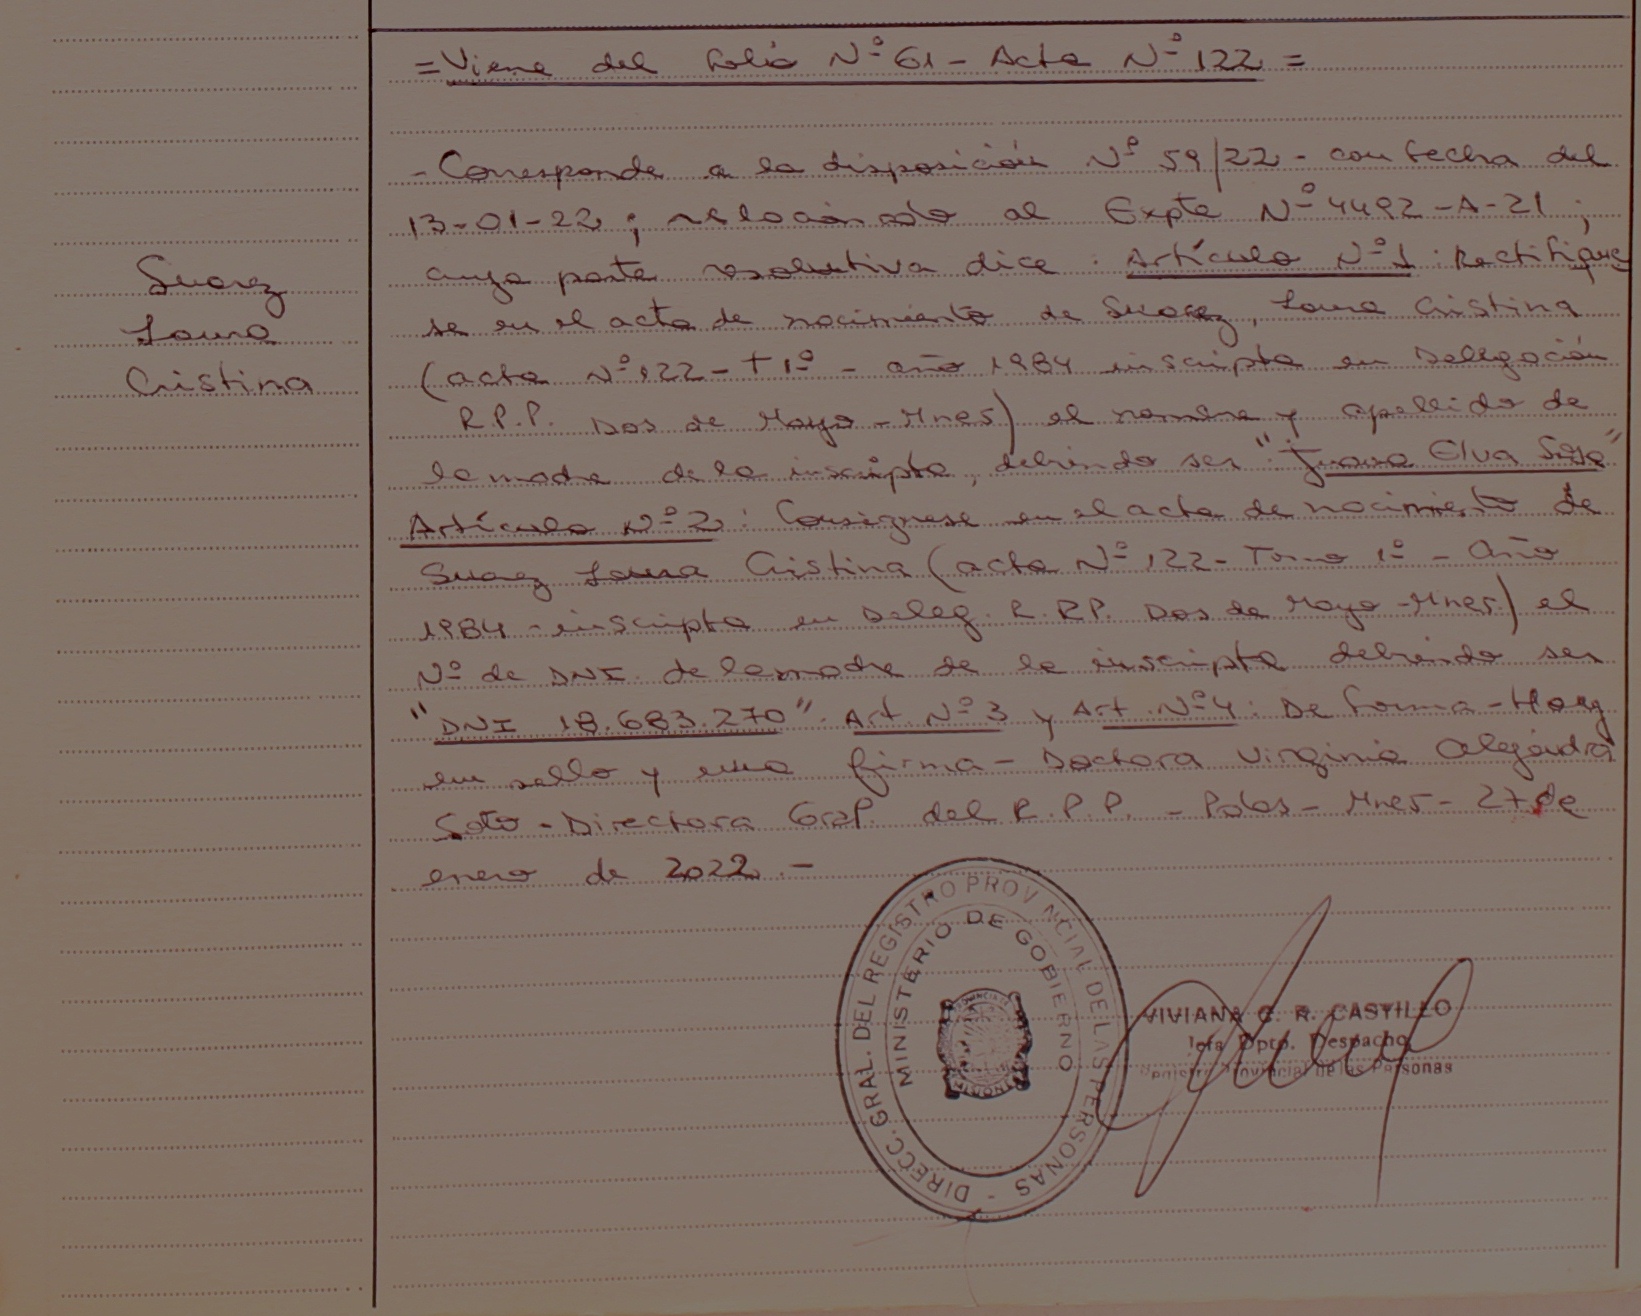 =Viene del folio Nº 61 - Acta Nº 122 =
- Corresponde a la disposición Nº 59/22 - con fecha del
13-01-22; relacionado al Expte Nº 4492-A-21;
cuya parte resolutiva dice: Artículo Nº 1: Rectifique
se en el acta de nacimiento de Suarez, Laura Cristina
(acta Nº 122 - T 1º - año 1984 inscripta en Delegación
R.P.P. Dos de Mayo - Mnes) el nombre y apellido de
la madre de la inscripta, debiendo ser "Juana Elva"
Artículo Nº 2: Consignese en el acta de nacimiento de
Suarez Laura Cristina (acta Nº 122 - Tomo 1º - Año
1984 - inscripta en Deleg. R.P.P. Dos de Mayo - Mnes.) el
Nº de DNI de la madre de la inscripta debiendo ser
"DNI 18.683.270". Art. Nº 3 y Art. Nº 4: De forma - Hay
un sello y una firma - Doctora Virginia Alejandra
Soto - Directora Gral. del R.P.P. - Pdas - Mnes - 27 de
enero de 2022. -
Suarez
Laura
Cristina
DIRECC. GRAL. DEL REGISTRO PROVINCIAL DE LAS PERSONAS -
MINISTERIO DE GOBIERNO
VIVIANA C. R. CASTILLO
Jefa Dpto. Despacho
Registro Provincial de las Personas